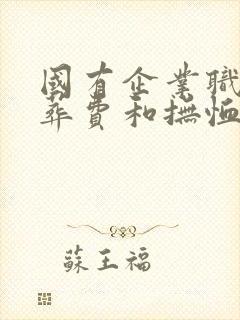 國有企業職
葬費和撫恤
蘇王福